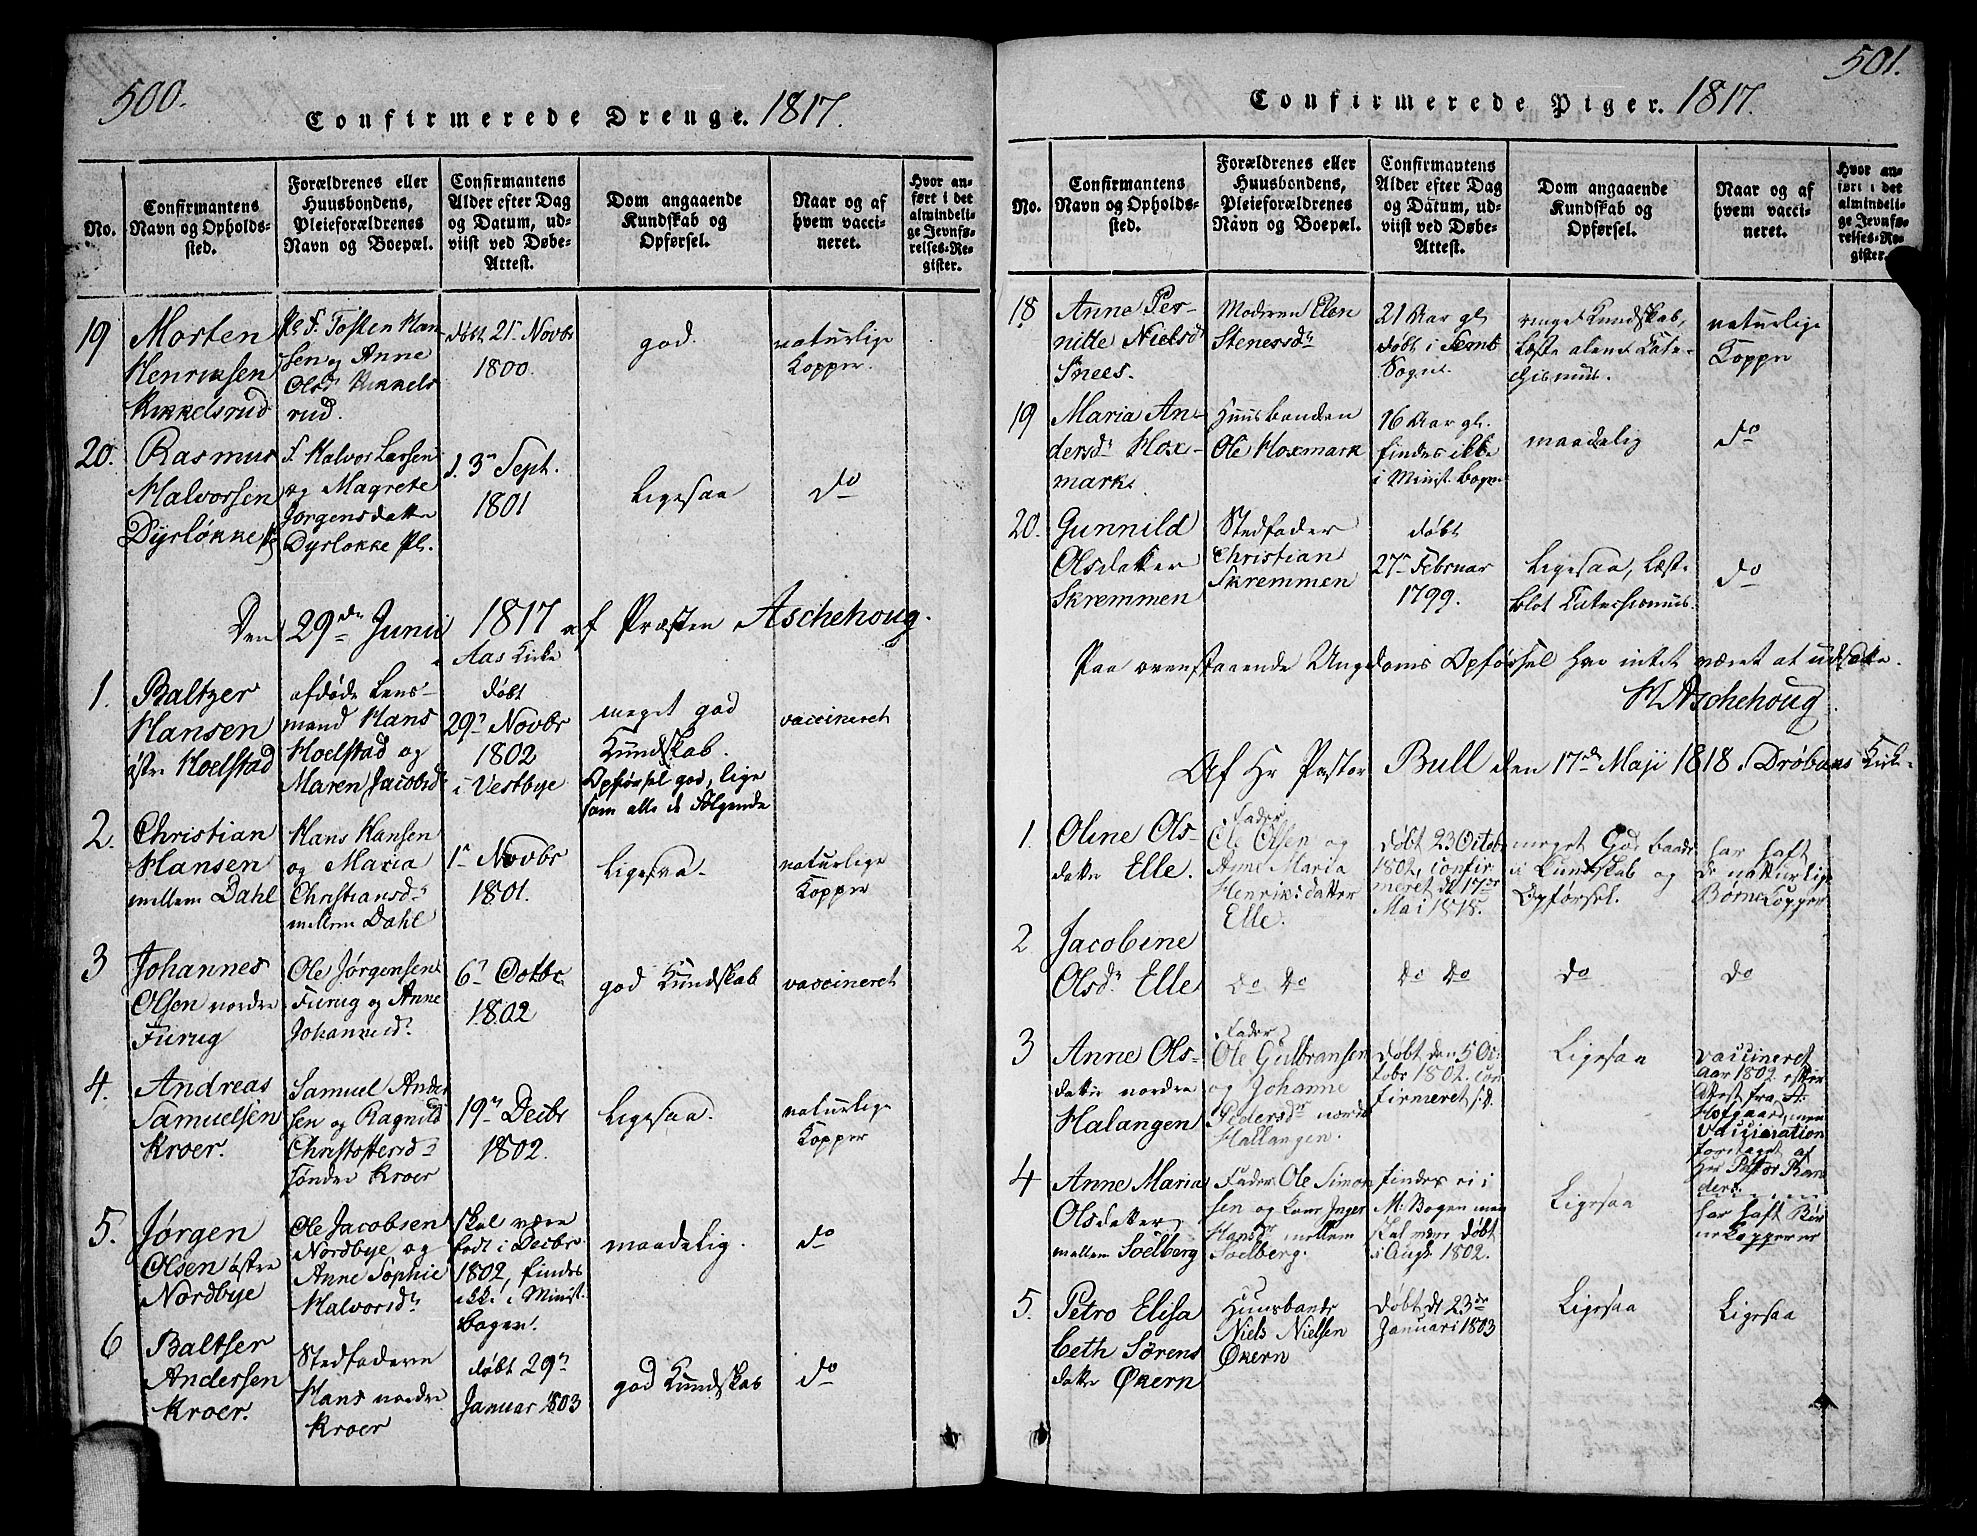 500.
Confirmerede Drenge. 1817.
No.
Confirmantens
Navn og Opholds-
sted.
Forældrenes eller
Huusbondens,
Pleieforældrenes
Navn og Boepæl.
Confirmantens
Alder efter Dag
og Datum, ud-
viist ved Døbe-
Attest.
Dom angaaende
Kundskab og
Opførsel.
Naar og af
hvem vacci-
neret.
Hvor an-
ført i det
almindeli-
ge Jevnfø-
relses-Re-
gister.
19
Morten
Henriksen
Kikkelsrud
F. Tosten Han-
sen og Anne
Olsd. Kikkels
rud.
døbt 21 Novbr
1800.
god.
naturlige
Kopper.
20.
Rasmus
Halvorsen
Dyrløkke
F. Halvor Larsen
og Magrete
Jorgensdatter
Dyrløkke Pl.
d. 3 Sept.
1801
Ligesaa
do
Den 29de Junii 1817 af Præsten Aschehoug.
i Aas Kirke
1.
Baltzer
Hansen
østre Hoelstad
afdøde Lens-
mand Hans
Hoelstad og
Maren Jacobsd.
døbt
29 Novbr
1802
i Vestbye
meget god
Kundskab.
Opførsel god, lige
som alle de Følgende
vaccineret
2.
Christian
Hansen
mellem Dahl
Hans Hansen
og Maria
Christiansd.
mellem Dahl
1 Novbr
1801.
Ligesaa.
naturlige
Kopper
3
Johannes
Olsen nordre
Furug
Ole Jørgensen
Furug og Anne
Johannesd.
6 Octbr
1802
god Kundskab
vaccineret
4.
Andreas
Samuelsen
Kroer.
Samuel Ander
sen og Ragnild
Christoffersd.
søndre Kroer
19 Decbr
1802.
Ligesaa.
naturlige
Kopper
5.
Jørgen
Olsen østre
Nordbye
Ole Jacobsen
Nordbye og
Anne Sophie
Halvorsd.
skal være
født i Decbr
1802, findes
ikke i Minist.
bogen.
maadelig.
do
6
Baltser
Andersen
Kroer.
Stedfaderen
Hans nordre
Kroer
døbt 29
Januar 1803
god Kundskab
do
501.
Confirmerede Piger. 1817.
No.
Confirmantens
Navn og Opholds-
sted.
Forældrenes eller
Huusbondens,
Pleieforældrenes
Navn og Boepæl.
Confirmantens
Alder efter Dag
og Datum, ud-
viist ved Døbe-
Attest.
Dom angaaende
Kundskab og
Opførsel.
Naar og af
hvem vacci-
neret.
Hvor an-
ført i det
almindeli-
ge Jevnfø-
relses-Re-
gister.
18
Anne Per-
nille Nielsd
Snees.
Moderen Elen
Stenersd.
21 Aar gl.
døbt i
Sogn.
ringe Kundskab,
læste alene Cate-
chismus.
naturlige
Kopper
19
Maria An-
dersd. Hox-
mark
Huusbonden
Ole Hoxmark
16 Aar gl.
findes ikke
i Minist. bogen
maadelig
do
20.
Gunnild
Olsdatter
Skremmen
Stedfader
Christian
Skremmen
døbt
27 Februar
1799.
Ligesaa, læste
blot Catechismus.
do
Paa ovenstaaende Ungdoms Opførsel har intet været at udsætte.
H Aschehoug.
Af Hr Pastor Bull den 17de Maji 1818 i Drøbaks Kirke
1.
Oline Ols-
datter Elle.
Fader
Ole Olsen og
Anne Maria
Henriksdatter
Elle.
døbt 23 Octob
1802, confir
meret d. 17de
Mai 1818.
meget God baade
i Kundskab og
Opførsel.
har haft
de naturlige
Børnekopper
2
Jacobine
Olsd. Elle
do do
do do
do
do
3
Anne Ols-
datter nordre
Halangen
Fader
Ole Gulbransen
og Johanne
Pedersd. nordre
Hallangen.
Døbt den 5 Oc
tobr 1802. con
firmeret s. d.
Ligesaa
vaccineret
Aar 1802 efter
Attest fra
Hofgaard, men
vaccination
foretaget af
Her Pastor
4
Anne Maria
Olsdatter
mellem Soelberg
Fader Ole Simon
sen og Kone Inger
Hansd. mellem
Soelberg.
findes ei i
M. Bogen men
skal være døbt
i Aug. 1802.
Ligesaa
har haft Bør
nekopperne
5.
Petro Elisa
beth Sørens
datter Økern
Huusbonde
Niels Nielsen
Økern
Døbt d. 23de
Januari 1803
Ligesaa
Ligesaa